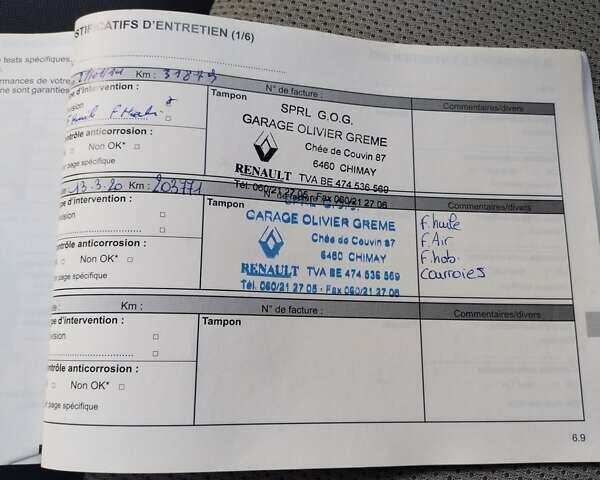 tests spécifiques,
rmances de votre
ne sont garanties
STIFICATIFS D'ENTRETIEN (1/6)
Km : 31879
N° de facture :
pe d'intervention :
Tampon
Commentaires/divers
vision
SPRL G.O.G.
GARAGE OLIVIER GREME
ntrôle anticorrosion :
Chée de Couvin 87
Non OK*
6460 CHIMAY
r page spécifique
RENAULT TVA BE 474 536 569
Tél. 060/21 27 06 - Fax 060/21 27 06
13-3-20 Km : 203771
N° de facture :
Commentaires/divers
pe d'intervention :
Tampon
vision
GARAGE OLIVIER GREME
F. huile
Chée de Couvin 87
F. Air
ntrôle anticorrosion :
6460 CHIMAY
F. hab.
Non OK*
RENAULT TVA BE 474 536 569
Courroies
r page spécifique
Tél. 060/21 27 06 - Fax 060/21 27 06
te : Km :
N° de facture :
Commentaires/divers
pe d'intervention :
Tampon
vision
ntrôle anticorrosion :
Non OK*
r page spécifique
6.9